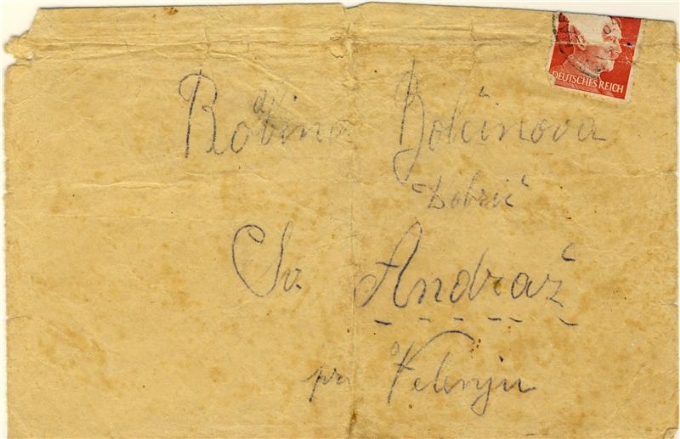 DEUTSCHES REICH
Rodbina Bolčinova
Dobrič
Sv. Andraž
pri Velenju